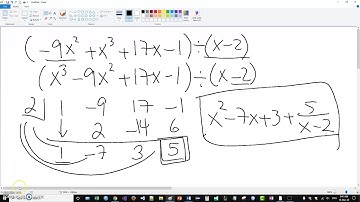 (-9x² + x³ + 17x - 1) ÷ (x - 2)
(x³ - 9x² + 17x - 1) ÷ (x - 2)
2 1 -9 17 -1
↓ 2 -14 6
1 -7 3 5
x² - 7x + 3 + 5/(x - 2)